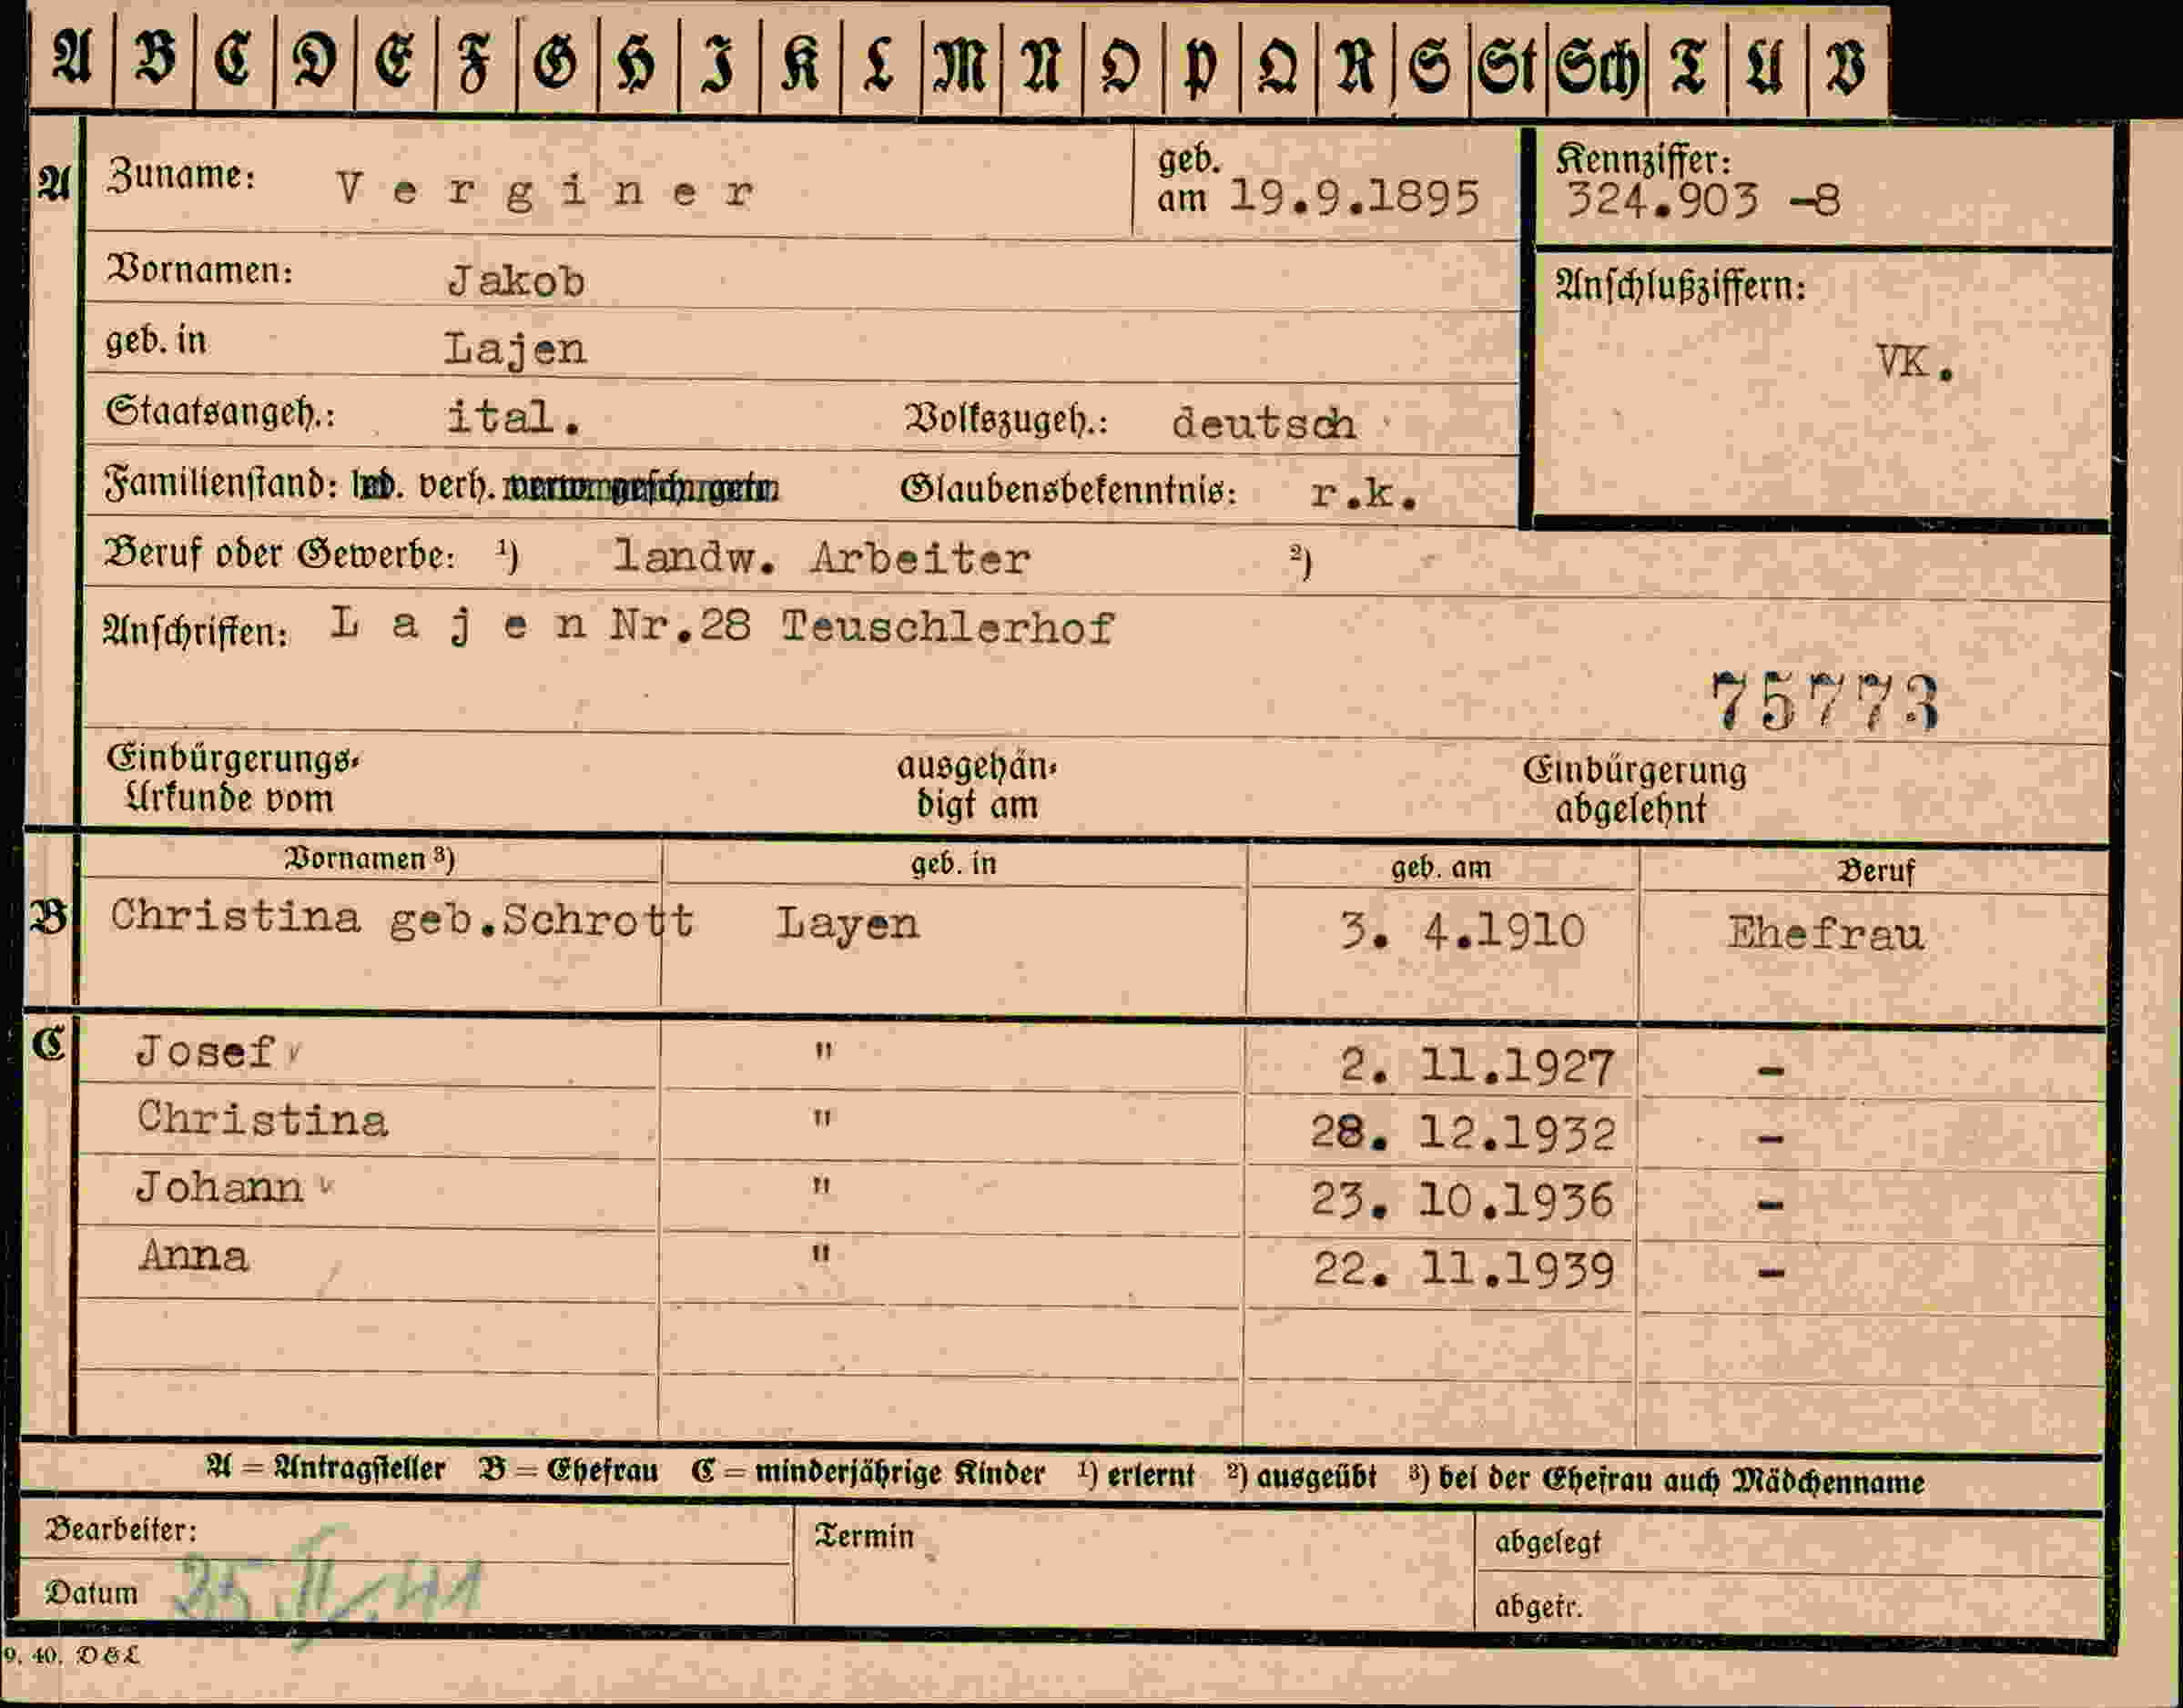 A B C D E F G H I K L M N O P Q R S St Sch T U V
A Zuname: Verginer geb. am 19.9.1895 Kennziffer: 324.903 -8
Vornamen: Jakob Anschlußziffern:
geb. in Lajen VK.
Staatsangeh.: ital. Volkszugeh.: deutsch
Familienstand: verh. Glaubensbekenntnis: r.k.
Beruf oder Gewerbe: ¹) landw. Arbeiter ²)
Anschriften: Lajen Nr.28 Teuschlerhof
75773
Einbürgerungs- ausgehän- Einbürgerung
Urkunde vom digt am abgelehnt
Vornamen ³) geb. in geb. am Beruf
B Christina geb.Schrott Layen 3. 4.1910 Ehefrau
C Josef " 2. 11.1927 -
Christina " 28. 12.1932 -
Johann " 23. 10.1936 -
Anna " 22. 11.1939 -
A = Antragsteller B = Ehefrau C = minderjährige Kinder ¹) erlernt ²) ausgeübt ³) bei der Ehefrau auch Mädchenname
Bearbeiter: Termin abgelegt
Datum abgetr.
9. 40. D&L